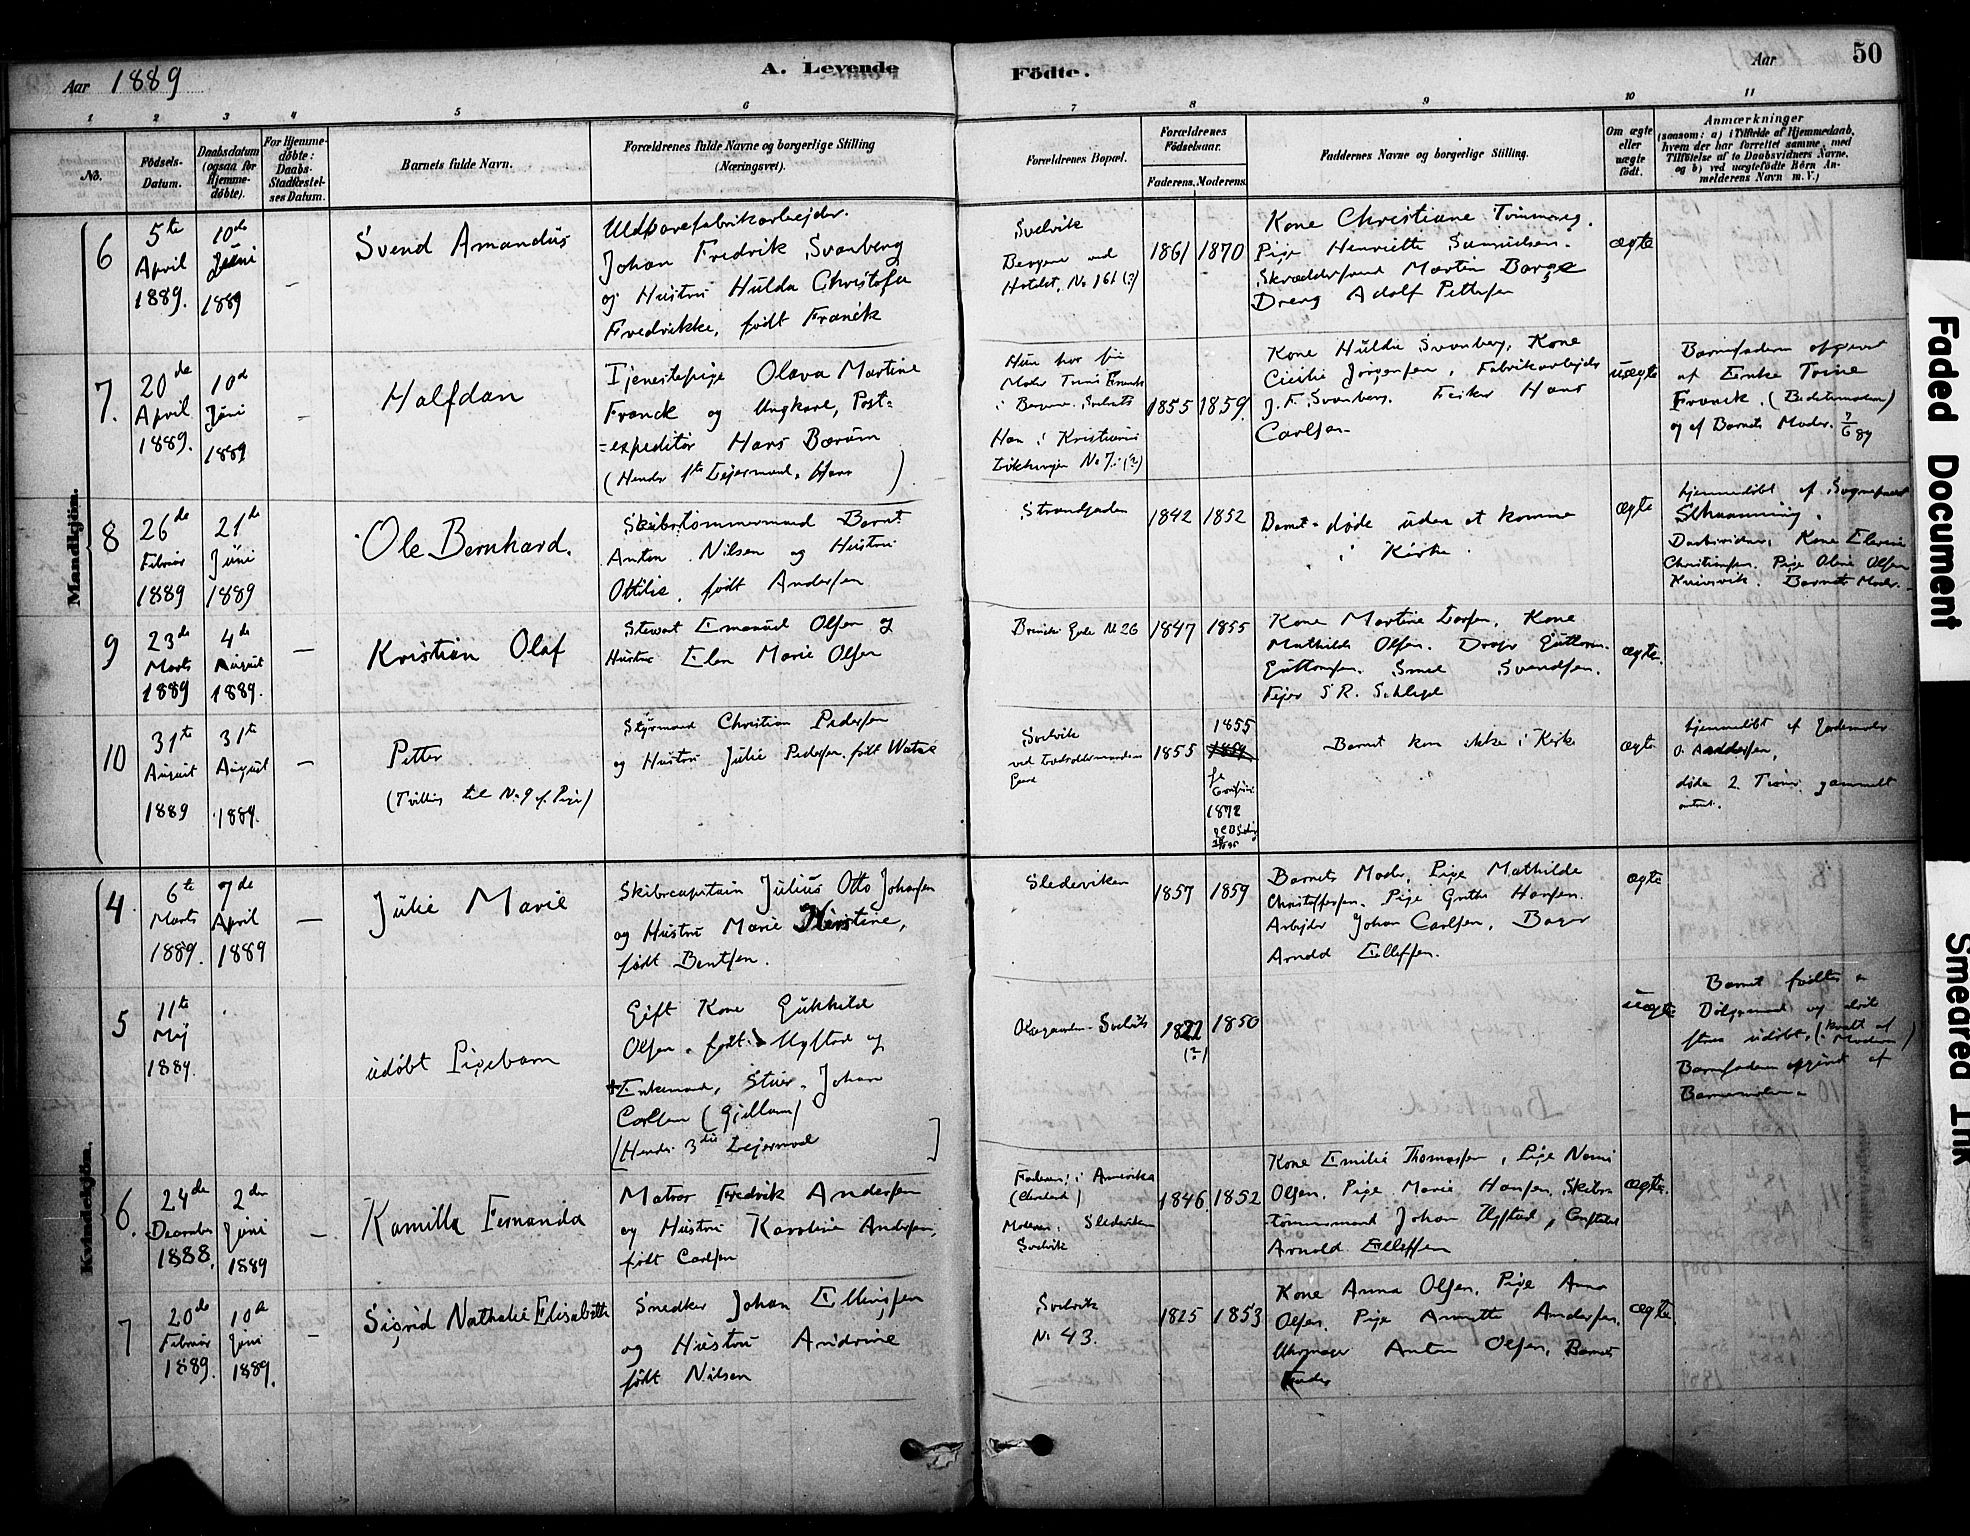 Aar 1889
A. Levende Fødte.
Aar
50
1 2 3 4 5 6 7 8 9 10 11
No.
Fødsels-Datum.
Daabsdatum (ogsaa for Hjemmedøbte).
For Hjemmedøbte: Daabs-Stadfæstelses Datum.
Barnets fulde Navn.
Forældrenes fulde Navne og borgerlige Stilling (Næringsvei).
Forældrenes Bopæl.
Forældrenes Fødselsaar.
Faderens. Moderens.
Faddernes Navne og borgerlige Stilling.
Om ægte eller uægte født.
Anmærkninger
(saasom: a) i Tilfælde af Hjemmedaab,
hvem der har forrettet samme, med
Tilføielse af to Daabsvidners Navne,
og b) ved uægtefødte Børn Anmelderens Navn m. V.)
Mandkjøn.
6
5te April 1889.
10de Juni 1889
Svend Amandus
Uldvarefabrikarbejder.
Johan Fredrik Svanberg
og Hustru Hulda Christofa
Fredrikke, født Franck
Svelvik
Bergene ved
Hotelet, No 161 (?)
1861 1870
Kone Christiane
Pige Henriette
Martin Borge
Dreng Adolf Pettersen
ægte
7.
20de April 1889.
10de Juni 1889
Halfdan
Tjenestepige Olava Martine
Franck og Ungkarl, Post-
=expeditør Hans Bærum
(Hendes 1ste Lejermaal, Hans )
Moder
i Bergene
Han i Kristiania
No 7. (?)
1855 1859.
Kone Hulda Svanberg, Kone
Cicilie Jørgensen, Fabrikarbejder
J. F. Svanberg. Fisker Hans
Carlsen
uægte
Barnefaderen opgivet
af Enke Trine
Franck. (Bedstemoderen)
og af Barnets Moder.
8
26de Februar 1889
21de Juni 1889
Ole Bernhard.
Skibstømmermand Bernt
Anton Nilsen og Hustru
Ottilie, født Andersen
Strandgaden
1842 1852
Barnet døde uden at komme
i Kirke.
ægte
Hjemmedøbt af Sogneprest
Kone
Christiansen. Pige Oline Olsen
Barnets Moder.
9
23de Marts 1889
4de August 1889.
Kristian Olaf
Stewart Emanuel Olsen og
Hustru Elen Marie Olsen
No 26
1847 1855
Kone Martine Larsen, Kone
Mathilde Olsen.
Smed Svendsen.
S. R. Schlegel
ægte.
10
31te August 1889
31te August 1889.
Petter
(Tvilling til No 9 af Pige)
Styrmand Christian Pedersen
og Hustru Julie Pedersen, født
Svelvik
ved
Gaard
1855 1855
1872
Barnet kom ikke i Kirke
ægte
Hjemmedøbt af Jordemoder
O. Andersen,
døde 2 Timer gammelt
Kvindekjøn.
4
6te Marts 1889.
7de April 1889
Julie Marie
Skibscapitain Julius Otto Johansen
og Hustru Marie Kirstine,
født Bentsen.
Sledeviken
1857 1859
Barnets Moder, Pige Mathilde
Christoffersen. Pige Grethe Hansen.
Arbejder Johan Carlsen, Bager
Arnold Ellefsen.
ægte
5
11te Maj 1889.
udøbt Pigebarn
Gift Kone Gunhild
Olsen, født Ulfstad og
Enkemand, Johan
Carlsen (Gjellum)
[Hendes 3die Lejermaal ]
Svelvik
(?)
1850
uægte
Barnet fødtes
Dølgsmaal og
udøbt, (kvalt af Moderen)
Barnefaderen opgivet af
Barnemoderen
6.
24de December 1888.
2den Juni 1889
Kamilla Fernanda
Matros Fredrik Andersen
og Hustru Karoline Andersen,
født Carlsen
Faderen: i Amerika
(Cleveland)
Moderen: Sledeviken
Svelvik
1846 1852
Kone Emilie Thomassen, Pige Nomi
Olsen. Pige Marie Hansen, Skibs-
tømmermand Johan Ulfstad,
Arnold Ellefsen
ægte.
7
20de Februar 1889.
10de Juni 1889.
Sigrid Nathalie Elisabeth
Snedker Johan Ellingsen
og Hustru Andrine
født Nilsen
Svelvik
No 43.
1825 1853
Kone Anna Olsen, Pige Anna
Olsen. Pige Annette Andersen.
Uhrmager Anton Olsen, Barnets
Fader
ægte.
Faded Document
Smeared Ink